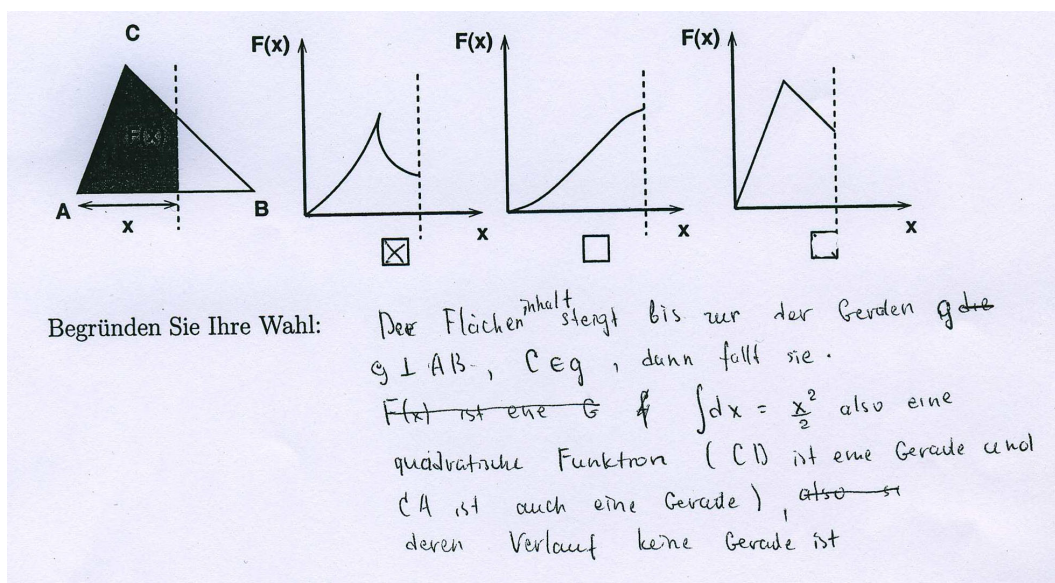 C
F(x)
F(x)
F(x)
F(x)
A
B
x
x
x
x
Begründen Sie Ihre Wahl:
Der Flächeninhalt steigt bis zur der Gerden g die
g ⊥ AB, C ∈ g, dann fällt sie.
F(x) ist ene G ∫dx = x²/2 also eine
quadratische Funktion (CD ist eine Gerade und
CA ist auch eine Gerade), also si
deren Verlauf keine Gerade ist